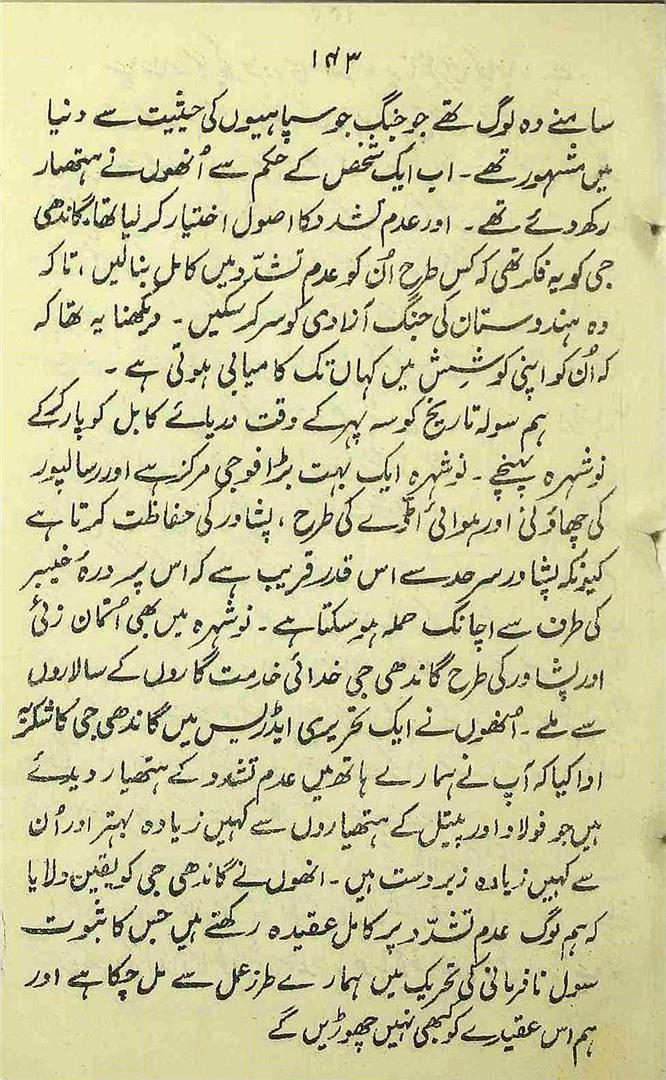 ۱۴۳
سامنے وہ لوگ تھے جو جنگ جو سپاہیوں کی حیثیت سے دنیا
میں مشہور تھے۔ اب ایک شخص کے حکم سے اُنھوں نے ہتھیار
رکھ دئے تھے۔ اور عدم تشدد کا اصول اختیار کر لیا تھا۔ گاندھی
جی کو یہ فکر تھی کہ کس طرح اُن کو عدم تشدّد میں کامل بنا لیں، تاکہ
وہ ہندوستان کی جنگ آزادی کو سر کر سکیں۔ دیکھنا یہ تھا کہ
کہ اُن کو اپنی کوشِش میں کہاں تک کامیابی ہوتی ہے۔
ہم سولہ تاریخ کو سہ پہر کے وقت دریائے کابل کو پار کرکے
نوشہرہ پہنچے۔ نوشہرہ ایک بہت بڑا فوجی مرکز ہے اور رسالپور
کی چھاؤنی اور ہوائی اڈّے کی طرح، پشاور کی حفاظت کرتا ہے
کیونکہ پشاور سرحد سے اس قدر قریب ہے کہ اس پر درۂ خیبر
کی طرف سے اچانک حملہ ہو سکتا ہے۔ نوشہرہ میں بھی اُتمان زئی
اور پشاور کی طرح گاندھی جی خدائی خدمت گاروں کے سالاروں
سے ملے۔ اُنھوں نے ایک تحریری ایڈریس میں گاندھی جی کا شکریہ
ادا کیا کہ آپ نے ہمارے ہاتھ میں عدم تشدد کے ہتھیار دیدئے
ہیں جو فولاد اور پیتل کے ہتھیاروں سے کہیں زیادہ بہتر اور اُن
سے کہیں زیادہ زبردست ہیں۔ انھوں نے گاندھی جی کو یقین دلایا
کہ ہم لوگ عدم تشدّد پر کامل عقیدہ رکھتے ہیں جس کا ثبوت
سول نافرمانی کی تحریک میں ہمارے طرزِ عمل سے مل چکا ہے اور
ہم اس عقیدے کو کبھی نہیں چھوڑیں گے